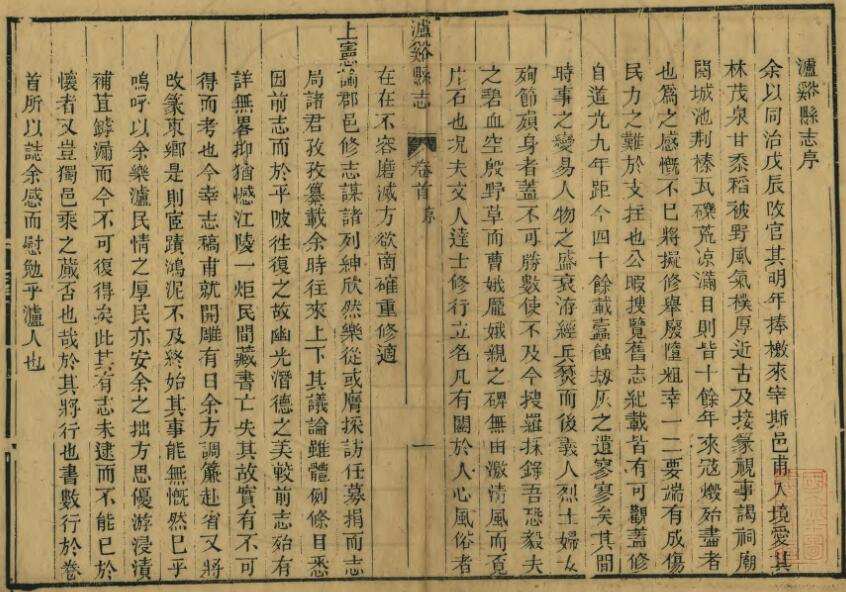 瀘谿縣志序
余以同治戊辰改官其明年捧檄來宰斯邑甫入境愛其
林茂泉甘黍稻被野風氣樸厚近古及接篆視事謁祠廟
閱城池荆榛瓦礫荒凉滿目則皆十餘年來寇燬殆盡者
也爲之感慨不已將擬修舉廢墮粗幸一二要端有成傷
民力之難於支拄也公暇搜覽舊志紀載皆有可觀蓋修
自道光九年距今四十餘載蠧蝕刼灰之遺寥寥矣其間
時事之變易人物之盛衰洊經兵燹而後義人烈士婦女
殉節殞身者蓋不可勝數使不及今搜羅採錄吾恐毅夫
之碧血空殷野草而曹娥龎娥親之碑無由激清風而覔
片石也况夫文人達士修行立名凡有關於人心風俗者
瀘谿縣志 卷首 序 一
在在不容磨滅方欲啇確重修適
上憲諭郡邑修志謀諸列紳欣然樂從或膺採訪任募捐而志
局諸君孜孜纂載余時往來上下其議論雖體例條目悉
因前志而於平陂往復之故幽光潛德之美較前志殆有
詳無畧抑猶憾江陵一炬民間藏書亡失其故實有不可
得而考也今幸志稿甫就開雕有日余方調簾赴省又將
改篆東鄉是則宦蹟鴻泥不及終始其事能無慨然已乎
嗚呼以余樂瀘民情之厚民亦安余之拙方思優游浸漬
補苴罅漏而今不可復得矣此其有志未逮而不能已於
懷者又豈獨邑乘之蕆否也哉於其將行也書數行於卷
首所以誌余感而慰勉乎瀘人也